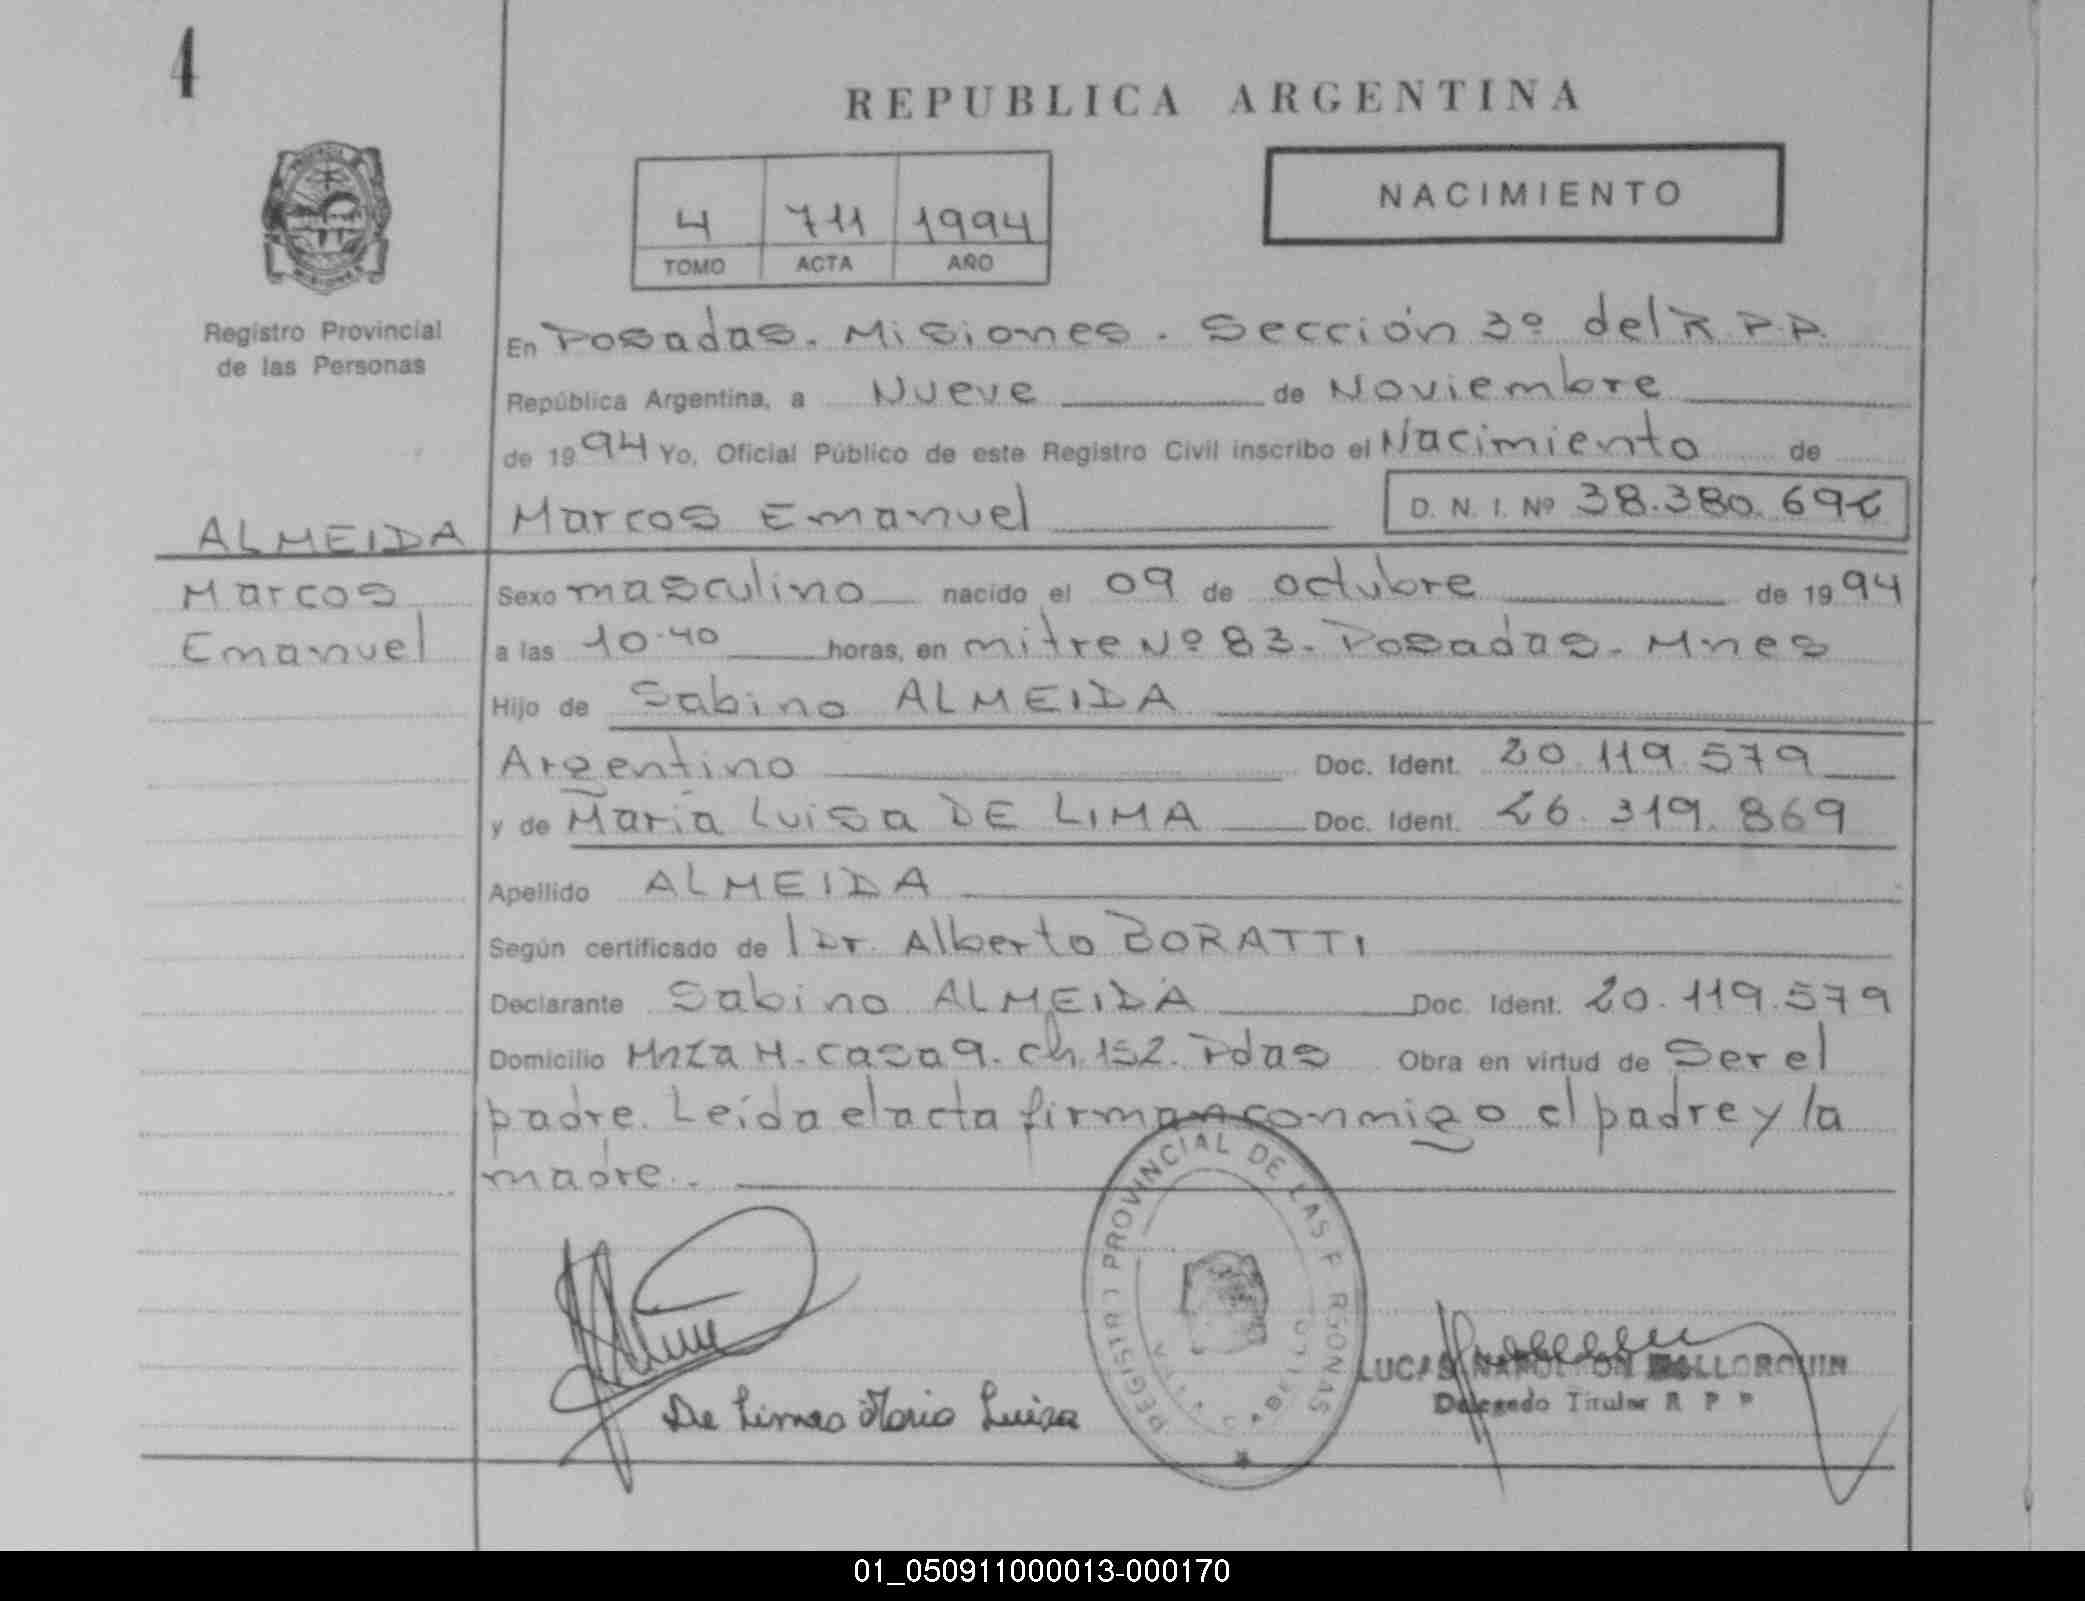 4
REPUBLICA ARGENTINA
NACIMIENTO
4 711 1994
TOMO ACTA AÑO
Registro Provincial
de las Personas
En Posadas. Misiones. Sección 3º del R.P.P.
República Argentina, a Nueve de Noviembre
de 1994 Yo, Oficial Público de este Registro Civil inscribo el Nacimiento de
ALMEIDA Marcos Emanuel D. N. I. Nº 38.380.692
Marcos
Emanuel
Sexo masculino nacido el 09 de octubre de 1994
a las 10.40 horas, en mitre Nº 83. Posadas. Mnes
Hijo de Sabino ALMEIDA
Argentino Doc. Ident. 20.119.579
y de María Luisa DE LIMA Doc. Ident. 26.319.869
Apellido ALMEIDA
Según certificado de Dr. Alberto BORATTI
Declarante Sabino ALMEIDA Doc. Ident. 20.119.579
Domicilio Mnza H. casa 9. ch. 152. Pdas Obra en virtud de Ser el
padre. Leída el acta firman conmigo el padre y la
madre.
REGISTRO PROVINCIAL DE LAS PERSONAS
De Limas Maria Luiza
LUCAS NAPOLEON MALLORQUIN
Delegado Titular R P P
01_050911000013-000170